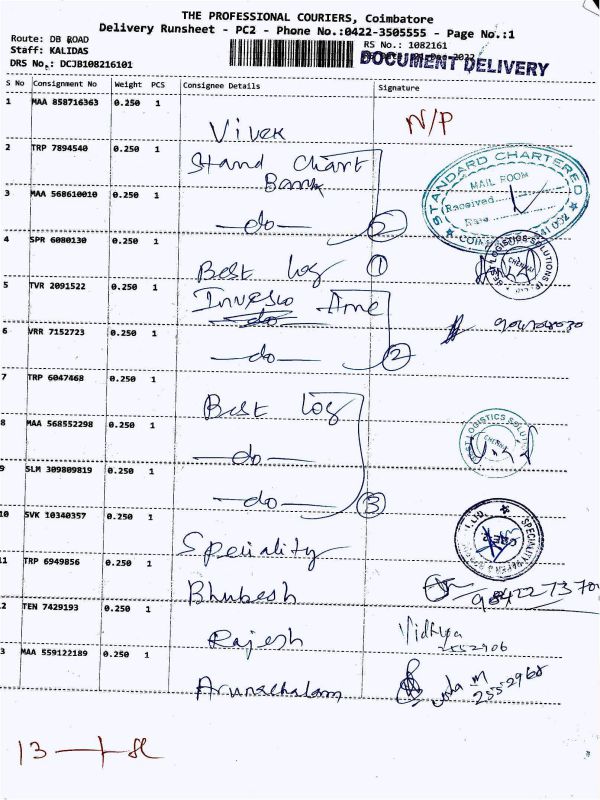 THE PROFESSIONAL COURIERS, Coimbatore
Delivery Runsheet - PC2 - Phone No.:0422-3505555 - Page No.:1
Route: DB ROAD
RS No.: 1082161
Staff: KALIDAS
DOCUMENT DELIVERY
DRS No.: DCJB108216101
S No Consignment No Weight PCS Consignee Details Signature
1 MAA 858716363 0.250 1 Vivek N/P
2 TRP 7894540 0.250 1 Stand Chart Bank
STANDARD CHARTERED
MAIL ROOM
Received
3 MAA 568610010 0.250 1 —do— 2
4 SPR 6080130 0.250 1 Best Log 1
CHENNAI
5 TVR 2091522 0.250 1 Invesco
do
6 VRR 7152723 0.250 1 —do— 2
7 TRP 6047468 0.250 1 Best Log
8 MAA 568552298 0.250 1 —do—
CHENNAI
9 SLM 309809819 0.250 1 —do— 3
10 SVK 10340357 0.250 1 Speciality
11 TRP 6949856 0.250 1 Bhubesh
2 TEN 7429193 0.250 1 Rajesh Vidhya
2552906
3 MAA 559122189 0.250 1 Arunachalam
2552968
13